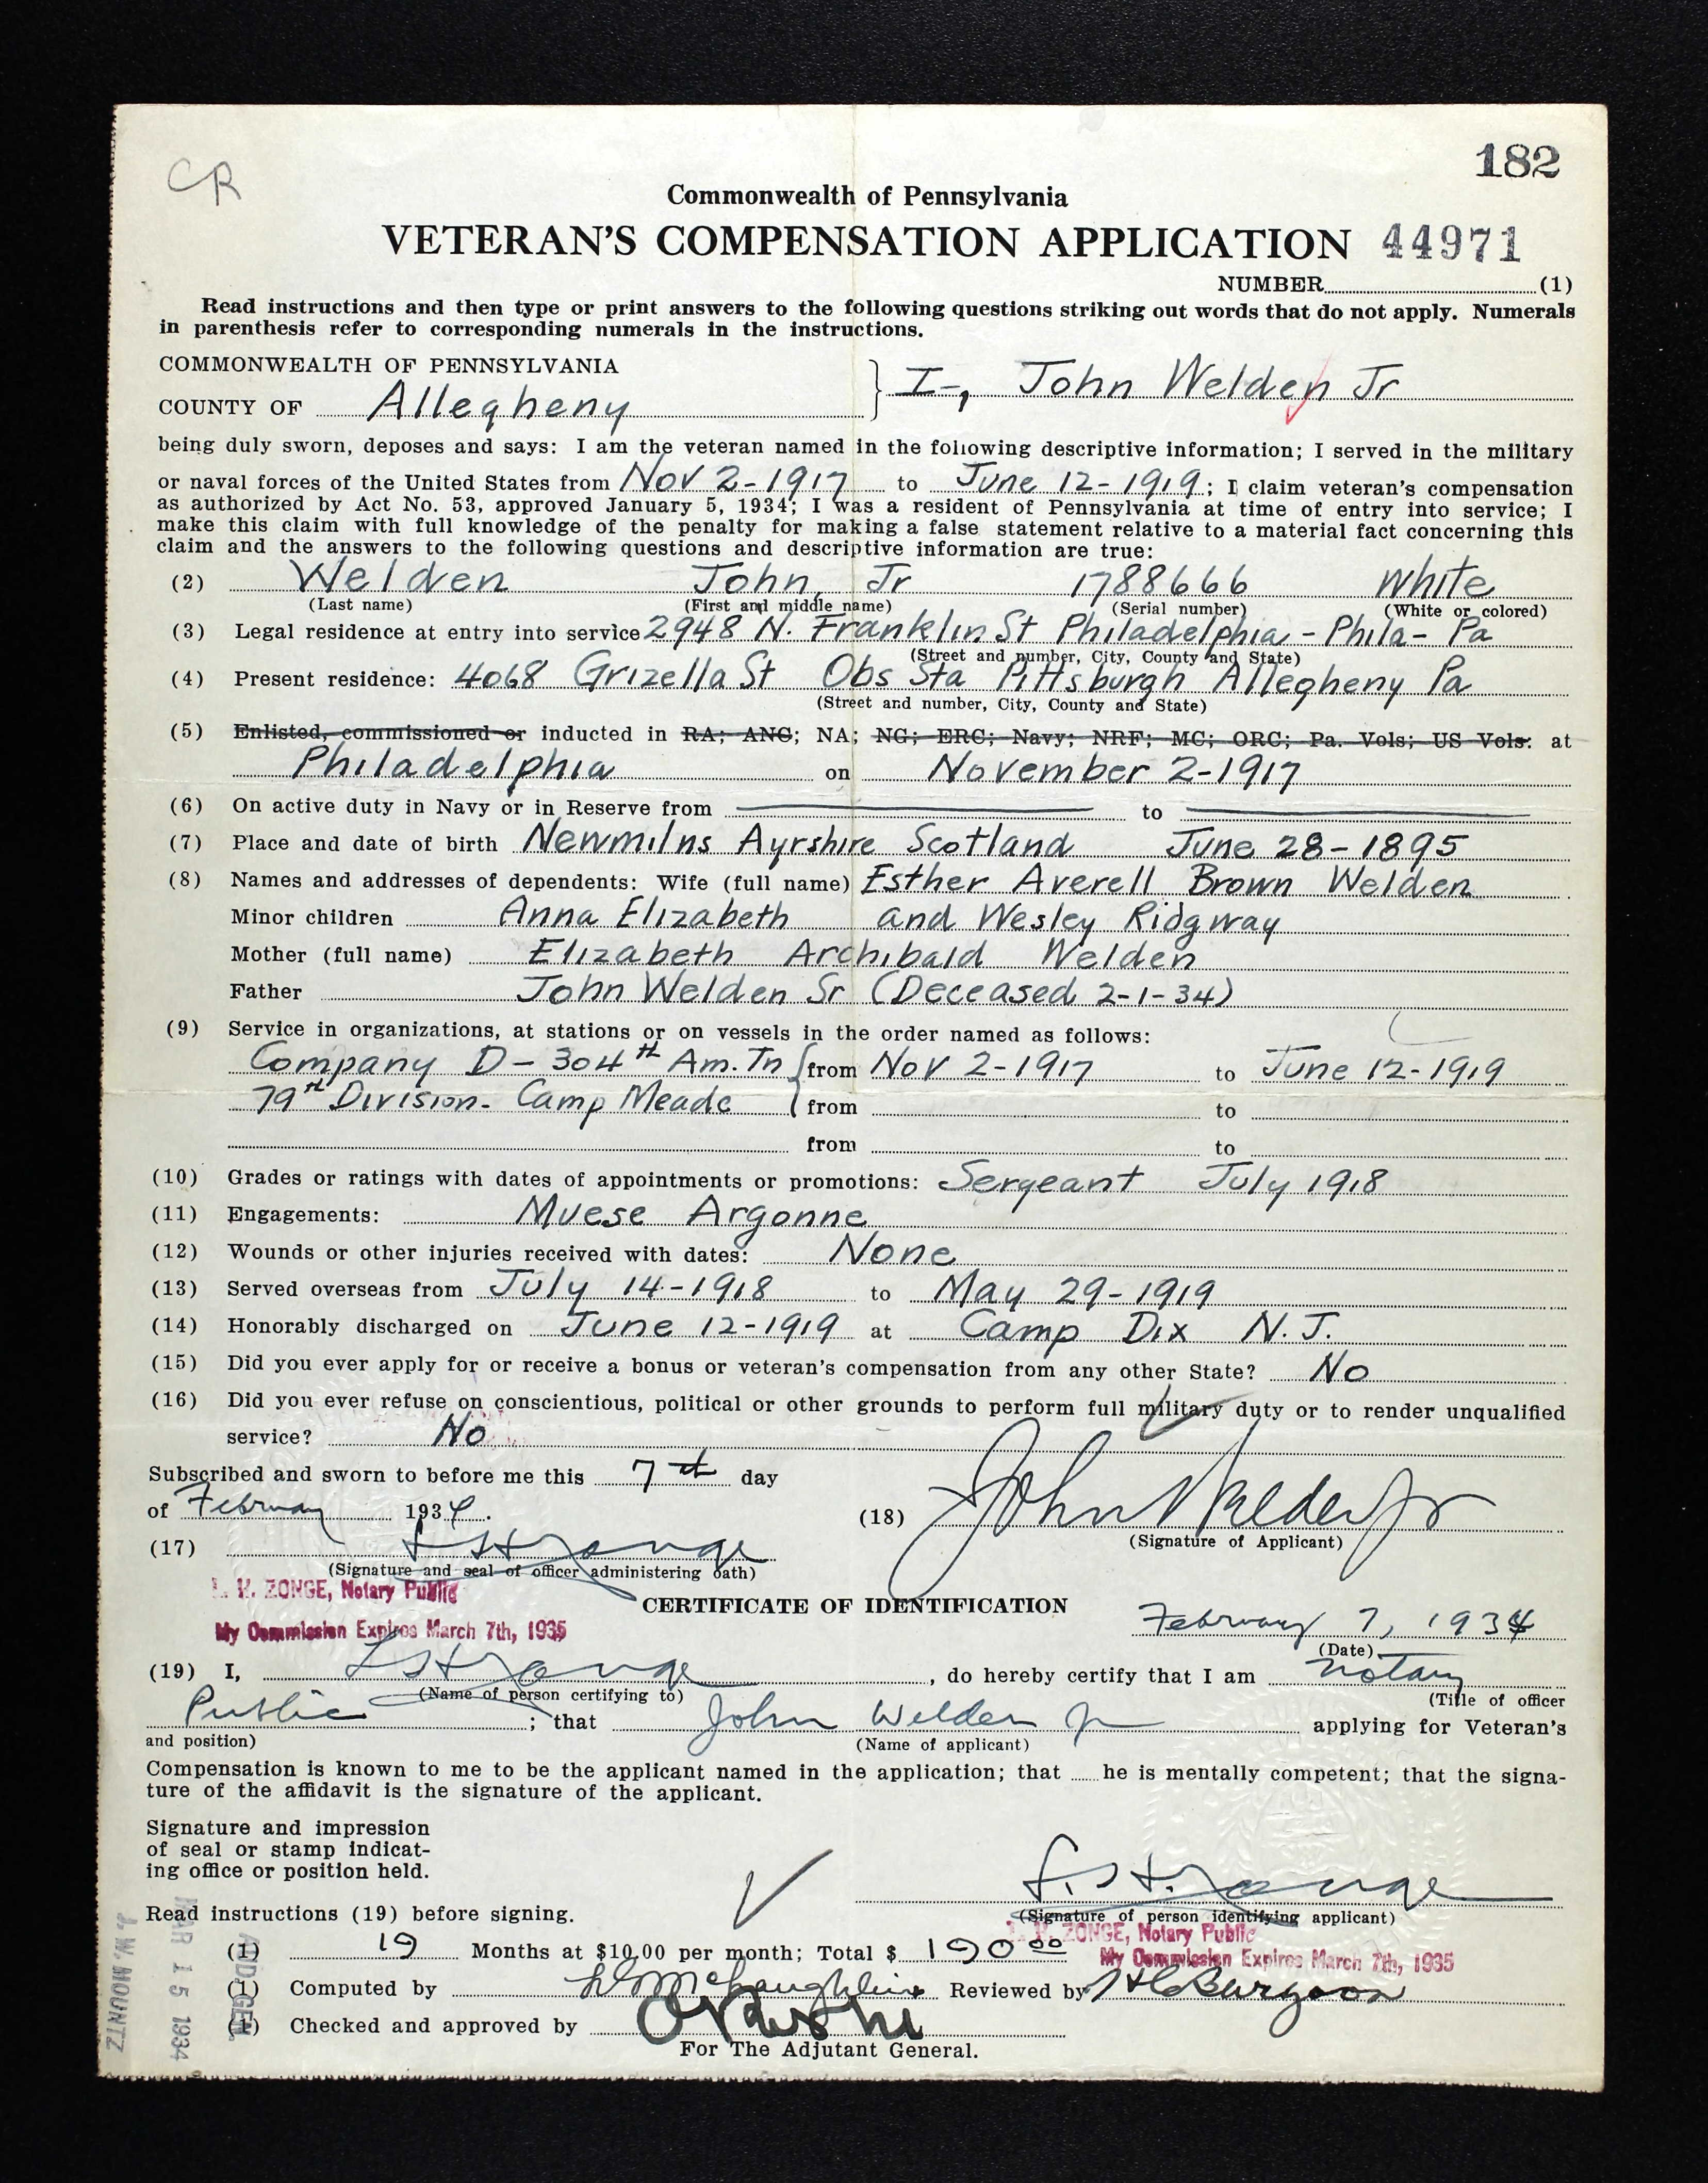 CR
182
Commonwealth of Pennsylvania
VETERAN'S COMPENSATION APPLICATION 44971
NUMBER (1)
Read instructions and then type or print answers to the following questions striking out words that do not apply. Numerals
in parenthesis refer to corresponding numerals in the instructions.
COMMONWEALTH OF PENNSYLVANIA
COUNTY OF Allegheny } I, John Welden Jr
being duly sworn, deposes and says: I am the veteran named in the following descriptive information; I served in the military
or naval forces of the United States from Nov 2-1917 to June 12-1919; I claim veteran's compensation
as authorized by Act No. 53, approved January 5, 1934; I was a resident of Pennsylvania at time of entry into service; I
make this claim with full knowledge of the penalty for making a false statement relative to a material fact concerning this
claim and the answers to the following questions and descriptive information are true:
(2) Welden John, Jr 1788666 White
(Last name) (First and middle name) (Serial number) (White or colored)
(3) Legal residence at entry into service 2948 N. Franklin St Philadelphia - Phila - Pa
(Street and number, City, County and State)
(4) Present residence: 4068 Grizella St Obs Sta Pittsburgh Allegheny Pa
(Street and number, City, County and State)
(5) Enlisted, commissioned or inducted in RA; ANG; NA; NG; ERC; Navy; NRF; MC; ORC; Pa. Vols; US Vols: at
Philadelphia on November 2-1917
(6) On active duty in Navy or in Reserve from to
(7) Place and date of birth Newmilns Ayrshire Scotland June 28-1895
(8) Names and addresses of dependents: Wife (full name) Esther Averell Brown Welden
Minor children Anna Elizabeth and Wesley Ridgway
Mother (full name) Elizabeth Archibald Welden
Father John Welden Sr (Deceased 2-1-34)
(9) Service in organizations, at stations or on vessels in the order named as follows:
Company D - 304th Am. Tn { from Nov 2-1917 to June 12-1919
79th Division - Camp Meade from to
from to
(10) Grades or ratings with dates of appointments or promotions: Sergeant July 1918
(11) Engagements: Muese Argonne
(12) Wounds or other injuries received with dates: None
(13) Served overseas from July 14-1918 to May 29-1919
(14) Honorably discharged on June 12-1919 at Camp Dix N.J.
(15) Did you ever apply for or receive a bonus or veteran's compensation from any other State? No
(16) Did you ever refuse on conscientious, political or other grounds to perform full military duty or to render unqualified
service? No
Subscribed and sworn to before me this 7th day
of February 1934.
(18) John Welden Jr
(Signature of Applicant)
(17) L H Zonge
(Signature and seal of officer administering oath)
L. H. ZONGE, Notary Public
My Commission Expires March 7th, 1935
CERTIFICATE OF IDENTIFICATION
February 7, 1934
(Date)
(19) I, L H Zonge, do hereby certify that I am notary
(Name of person certifying to) (Title of officer
Public; that John Welden Jr applying for Veteran's
and position) (Name of applicant)
Compensation is known to me to be the applicant named in the application; that he is mentally competent; that the signa-
ture of the affidavit is the signature of the applicant.
Signature and impression
of seal or stamp indicat-
ing office or position held.
L. H. Zonge
Read instructions (19) before signing.
(Signature of person identifying applicant)
L. H. ZONGE, Notary Public
My Commission Expires March 7th, 1935
(1) 19 Months at $10.00 per month; Total $ 190 00
(1) Computed by McLaughlin Reviewed by H C Burgoon
(1) Checked and approved by
For The Adjutant General.
ADJ GEN.
MAR 15 1934
J. W. MOUNTZ